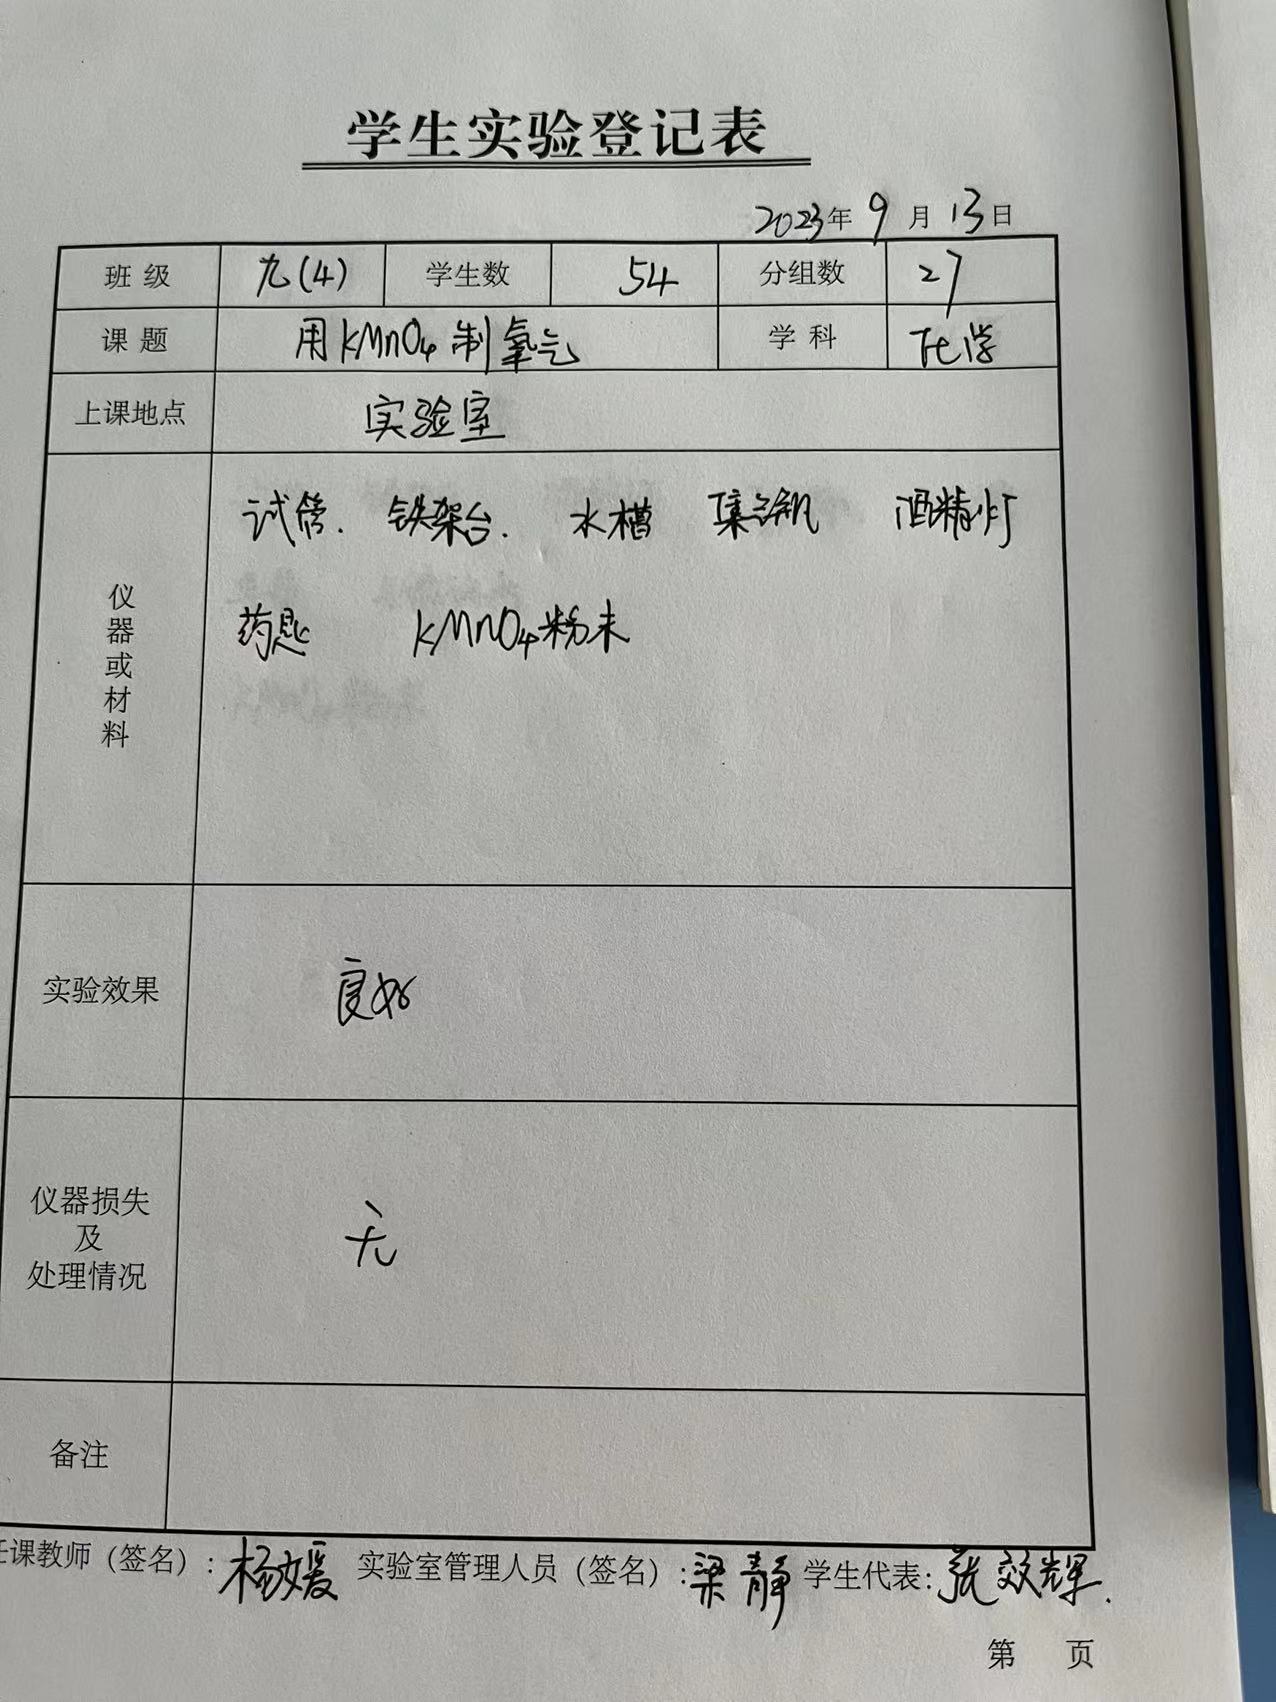 学生实验登记表
2023年 9 月 13 日
班 级 九(4) 学生数 54 分组数 27
课 题 用KMnO4制氧气 学 科 化学
上课地点 实验室
仪器或材料 试管. 铁架台. 水槽 集气瓶 酒精灯
药匙 KMnO4粉末
实验效果 良好
仪器损失
及
处理情况 无
备注
任课教师（签名）: 杨媛 实验室管理人员（签名）: 梁静 学生代表: 张效辉.
第 页